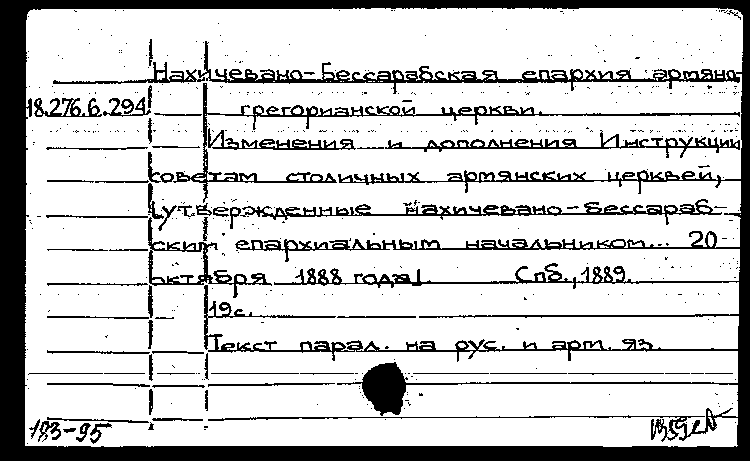 Нахичевано-Бессарабская епархия армяно-
18.276.6.294 грегорианской церкви.
Изменения и дополнения Инструкции
советам столичных армянских церквей,
[утвержденные Нахичевано-Бессараб-
ским епархиальным начальником... 20
октября 1888 года]. Спб., 1889.
19с.
Текст парал. на рус. и арм. яз.
183-95